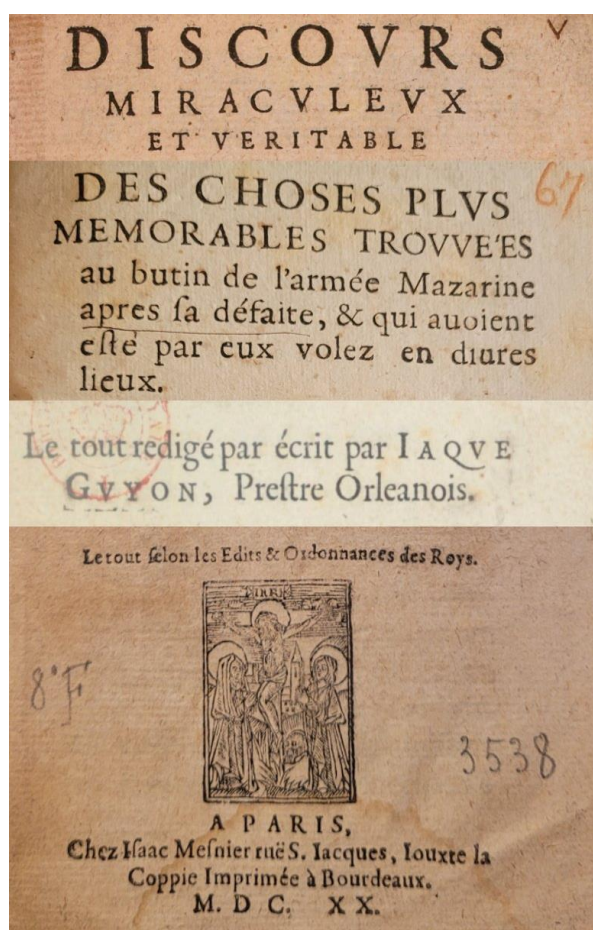 DISCOVRS
MIRACVLEVX
ET VERITABLE
DES CHOSES PLVS
67
MEMORABLES TROVVE'ES
au butin de l'armée Mazarine
apres ſa défaite, & qui auoient
eſté par eux volez en diures
lieux.
Le tout redigé par écrit par IAQVE
GVYON, Preſtre Orleanois.
Le tout ſelon les Edits & Ordonnances des Roys.
INRI
3538
A PARIS,
Chez Iſaac Meſnier ruë S. Iacques, Iouxte la
Coppie Imprimée à Bourdeaux.
M. D C. XX.